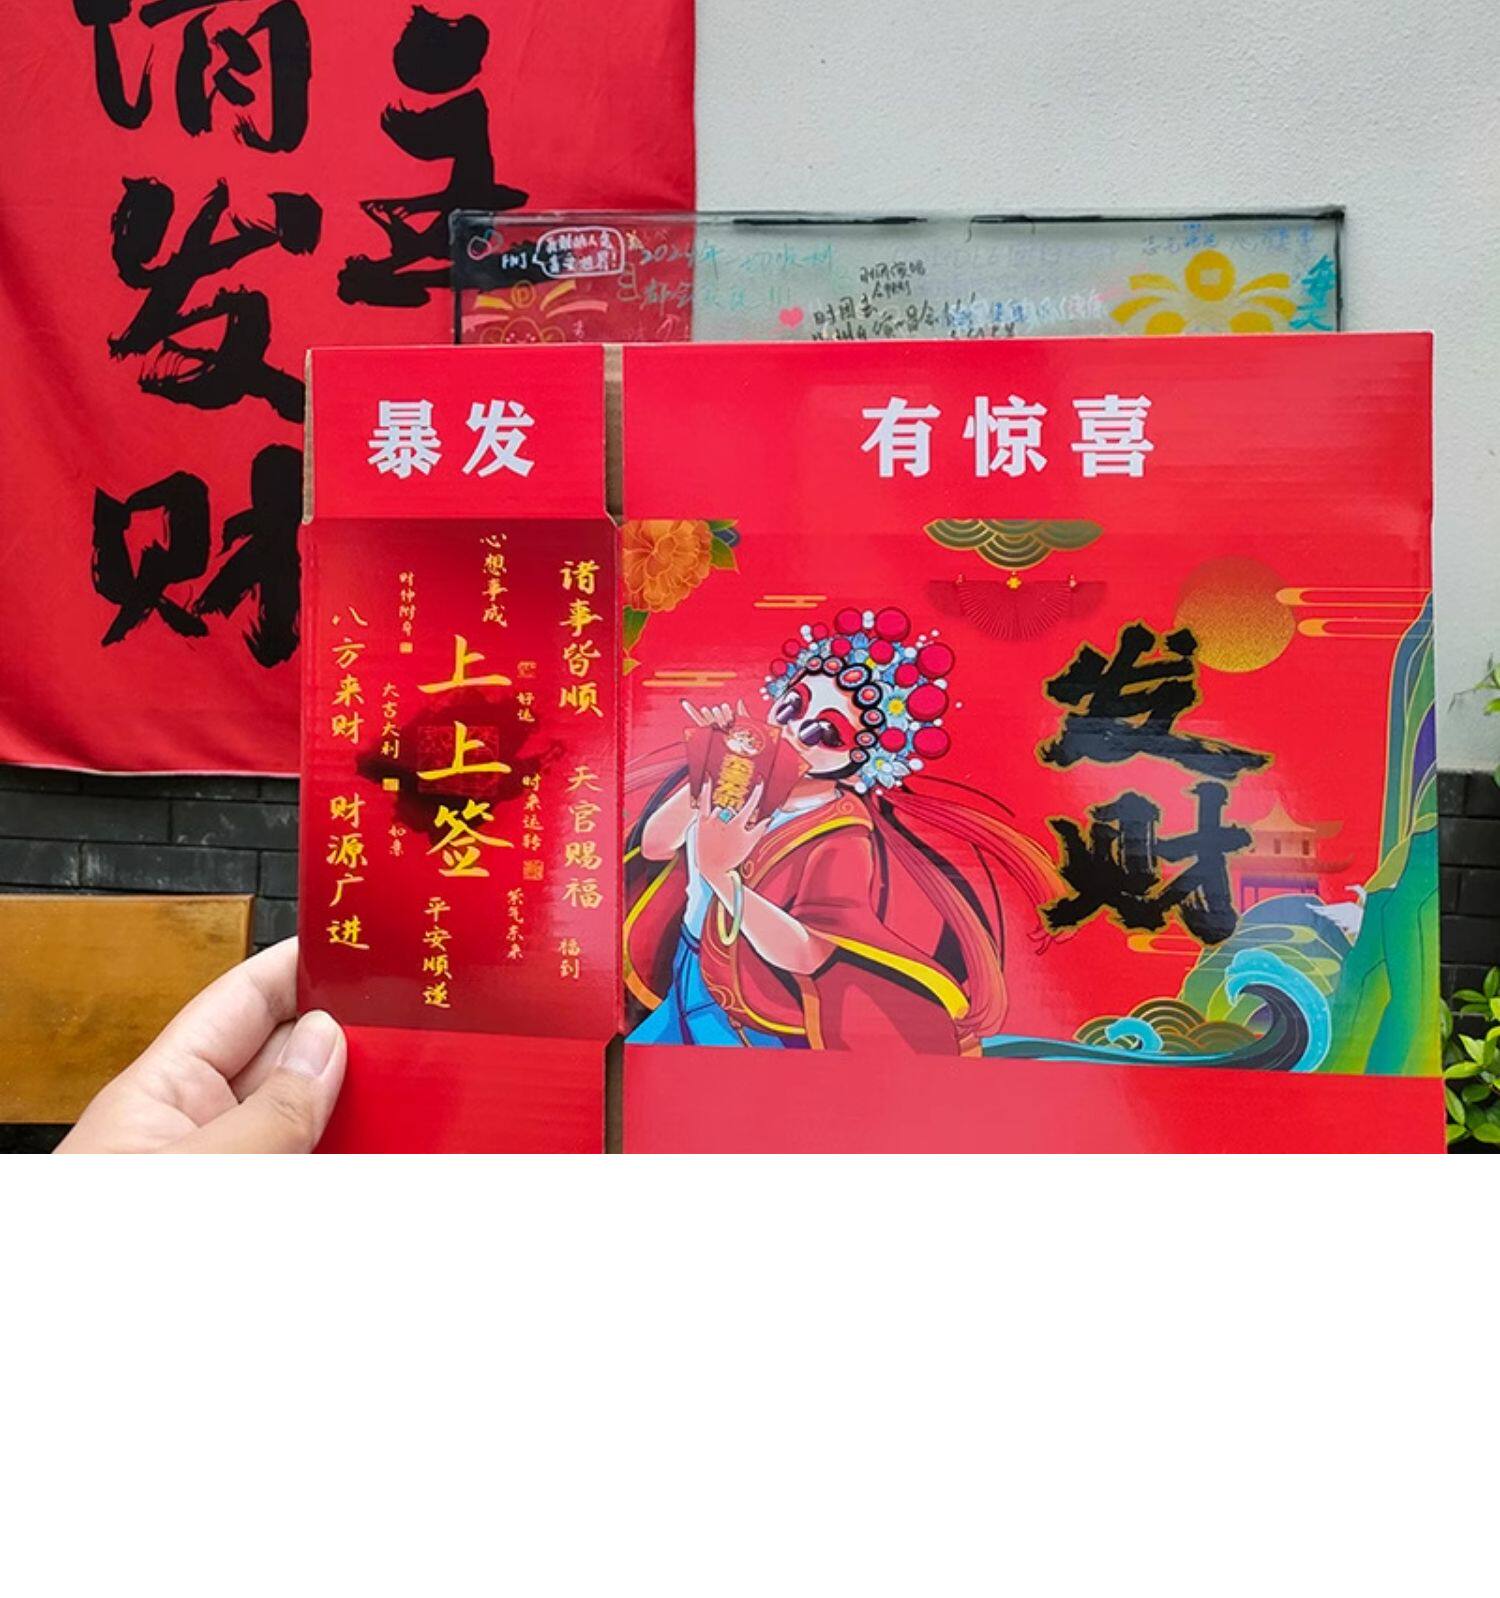 请发财
主
2024年一切顺利
都会
暴发
有惊喜
诸事皆顺
天官赐福
福到
心想事成
好运
时来运转
紫气东来
上上签
平安顺遂
财神附身
大吉大利
如意
八方来财
财源广进
发财